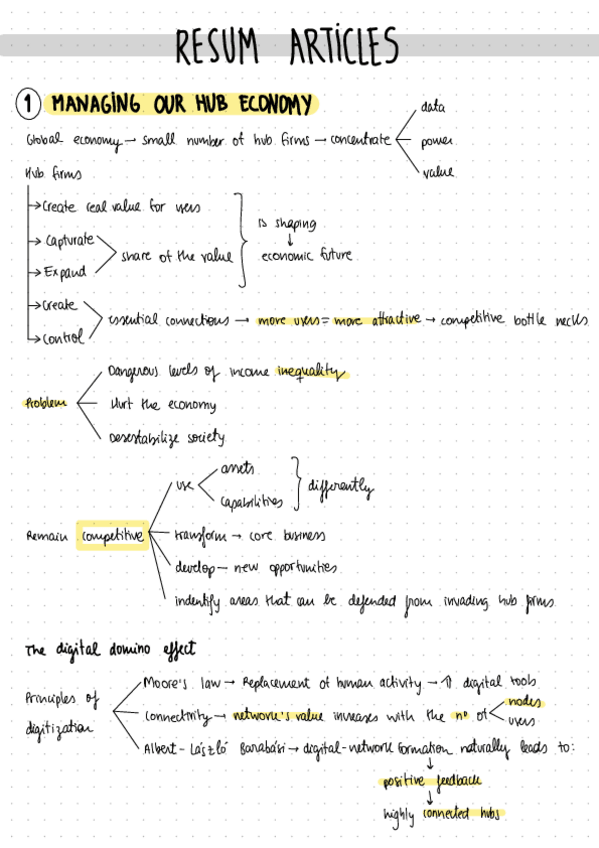 RESUM ARTICLES
1 MANAGING OUR HUB ECONOMY
Global economy → small number of hub firms → concentrate
data
power
value
Hub firms
→ Create real value for users
→ Capturate
→ Expand
share of the value
is shaping
↓
economic future
→ Create
→ Control
essential connections → more users = more attractive → competitive bottle necks
Problem
Dangerous levels of income inequality
Hurt the economy
Desestabilize society
Remain competitive
use
assets
capabilities
differently
transform → core business
develop → new opportunities
indentify areas that can be defended from invading hub firms
The digital domino effect
Principles of digitization
Moore's law → Replacement of human activity → ⇑ digital tools
Connectivity → network's value increases with the nº of
nodes
users
Albert-László Barabási → digital-network formation naturally leads to:
↓
positive feedback
↓
highly connected hubs